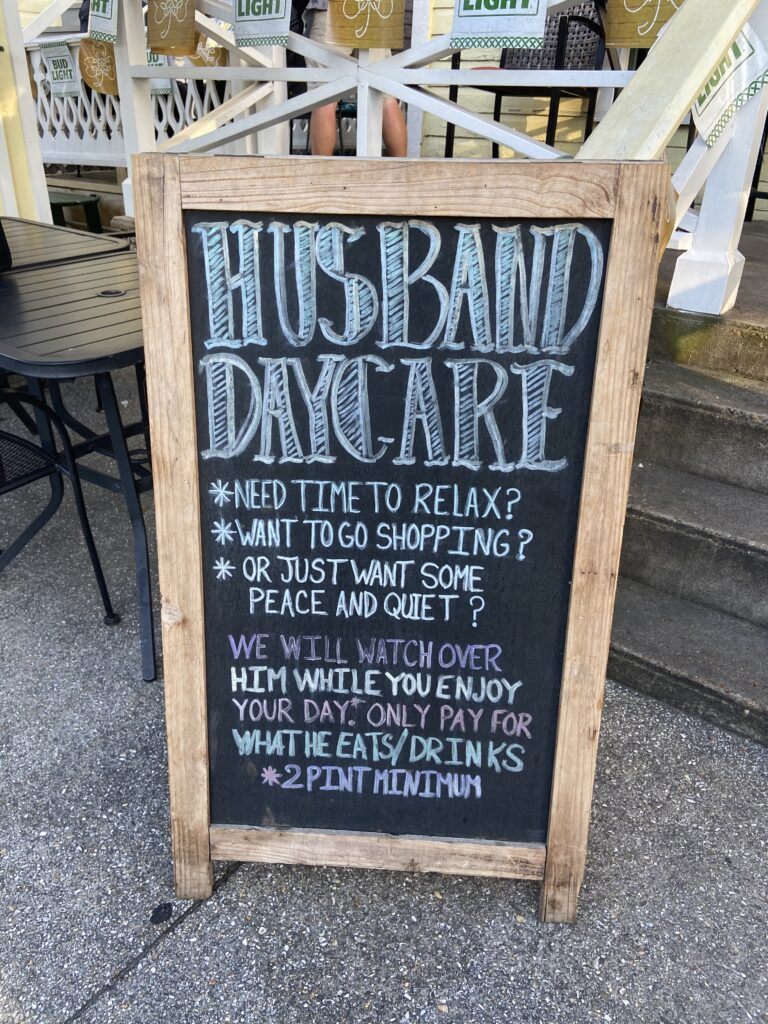 LIGHT
LIGHT
BUD
LIGHT
LIGHT
HUSBAND
DAYCARE
*NEED TIME TO RELAX?
*WANT TO GO SHOPPING?
* OR JUST WANT SOME
PEACE AND QUIET?
WE WILL WATCH OVER
HIM WHILE YOU ENJOY
YOUR DAY.* ONLY PAY FOR
WHAT HE EATS/DRINKS
*2 PINT MINIMUM